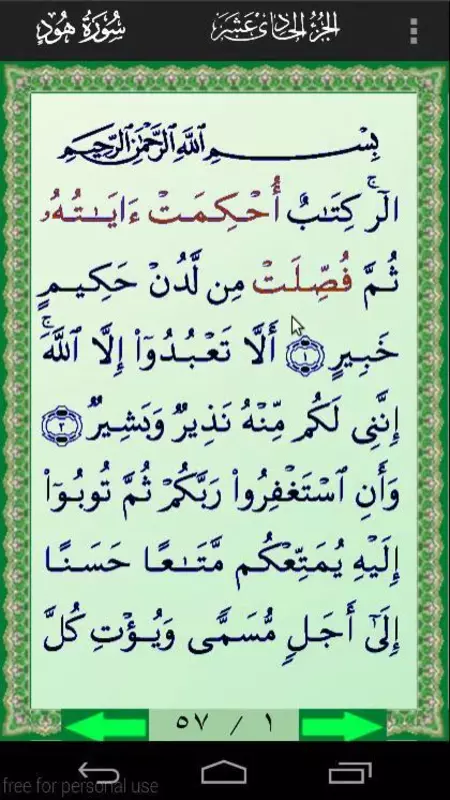 سُورَةُ هُودٍ الجُزْءُ الحَادِى عَشَرَ
بِسْمِ ٱللَّهِ ٱلرَّحْمَٰنِ ٱلرَّحِيمِ
الٓرۚ كِتَٰبٌ أُحْكِمَتْ ءَايَٰتُهُۥ
ثُمَّ فُصِّلَتْ مِن لَّدُنْ حَكِيمٍ
خَبِيرٍ ١ أَلَّا تَعْبُدُوٓا۟ إِلَّا ٱللَّهَۚ
إِنَّنِى لَكُم مِّنْهُ نَذِيرٌ وَبَشِيرٌ ٢
وَأَنِ ٱسْتَغْفِرُوا۟ رَبَّكُمْ ثُمَّ تُوبُوٓا۟
إِلَيْهِ يُمَتِّعْكُم مَّتَٰعًا حَسَنًا
إِلَىٰٓ أَجَلٍ مُّسَمًّى وَيُؤْتِ كُلَّ
٥٧ / ١
free for personal use